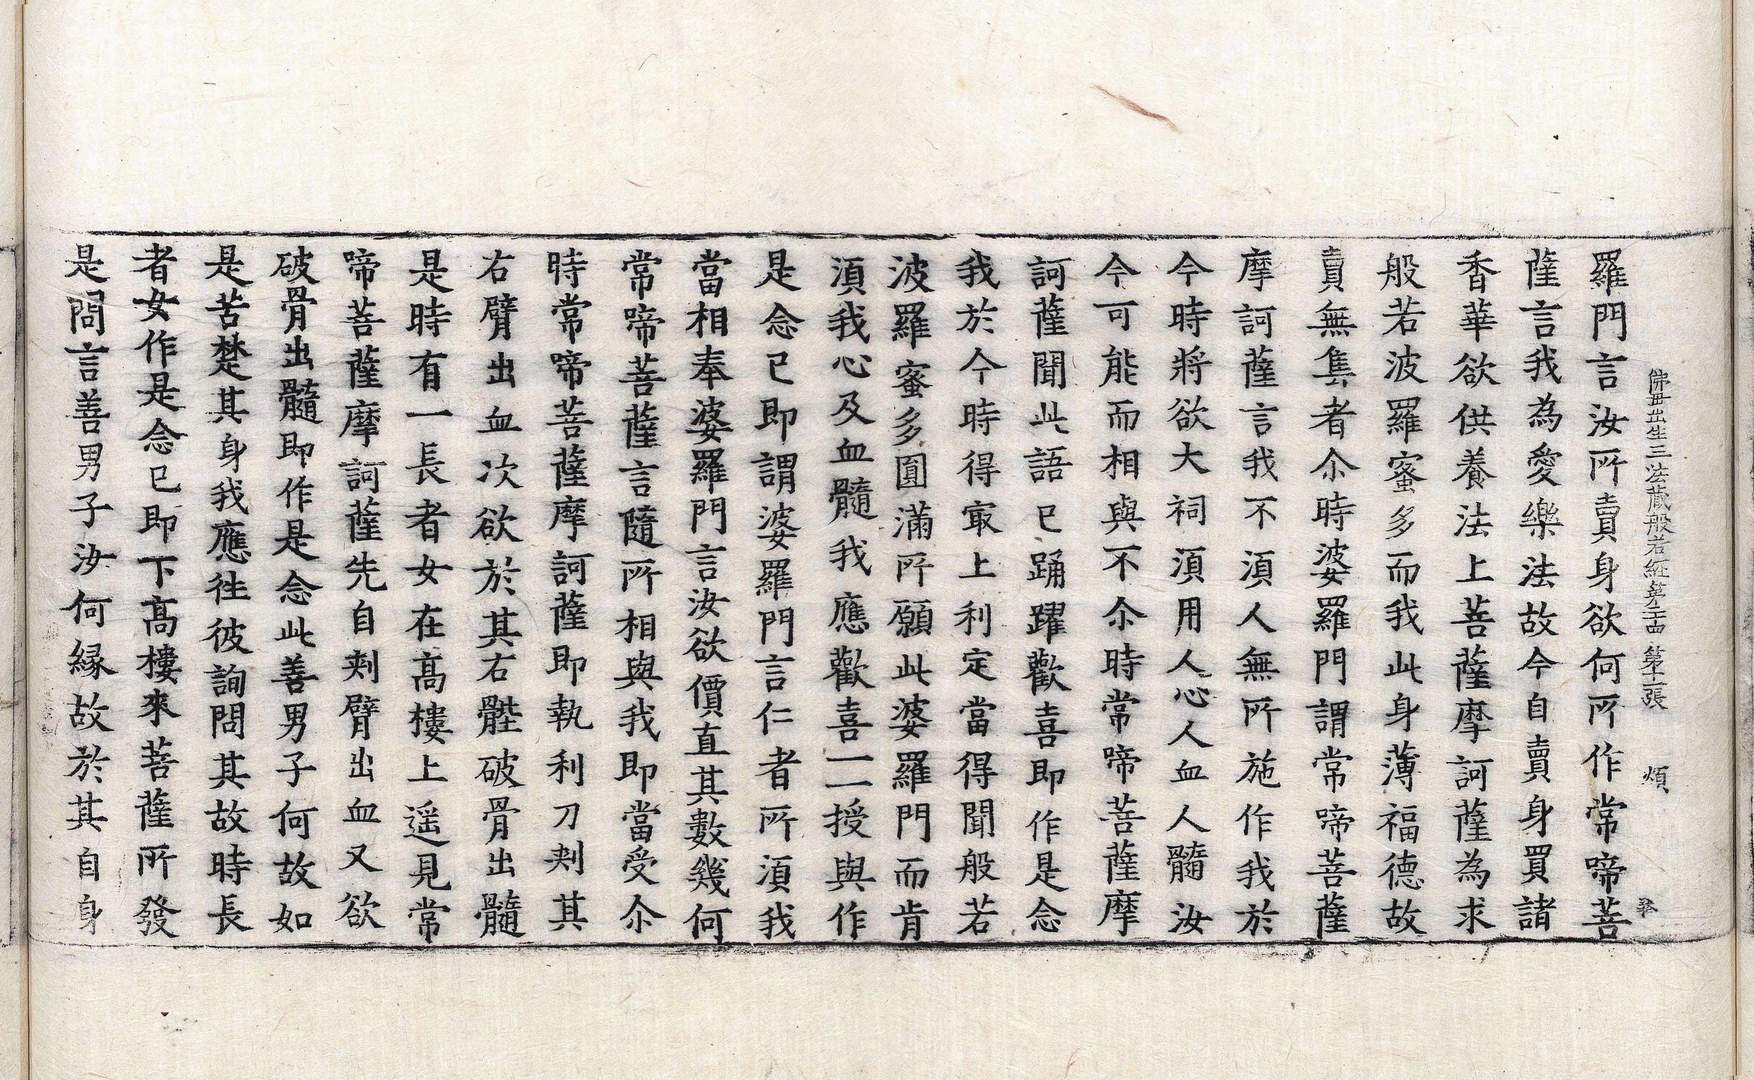 佛母出生三法藏般若經第二十四 第十二張 煩
羅門言汝所賣身欲何所作常啼菩
薩言我為愛樂法故今自賣身買諸
香華欲供養法上菩薩摩訶薩為求
般若波羅蜜多而我此身薄福德故
賣無集者尒時婆羅門謂常啼菩薩
摩訶薩言我不湏人無所施作我於
今時將欲大祠湏用人心人血人髓汝
今可能而相與不尒時常啼菩薩摩
訶薩聞此語已踊躍歡喜即作是念
我於今時得㝡上利定當得聞般若
波羅蜜多圓滿所願此婆羅門而肯
湏我心及血髓我應歡喜一一授與作
是念已即謂婆羅門言仁者所湏我
當相奉婆羅門言汝欲價直其數幾何
常啼菩薩言隨所相與我即當受尒
時常啼菩薩摩訶薩即執利刀刾其
右臂出血次欲於其右䏶破骨出髓
是時有一長者女在髙樓上遥見常
啼菩薩摩訶薩先自刾臂出血又欲
破骨出髓即作是念此善男子何故如
是苦楚其身我應徃彼詢問其故時長
者女作是念已即下髙樓來菩薩所發
是問言善男子汝何縁故於其自身